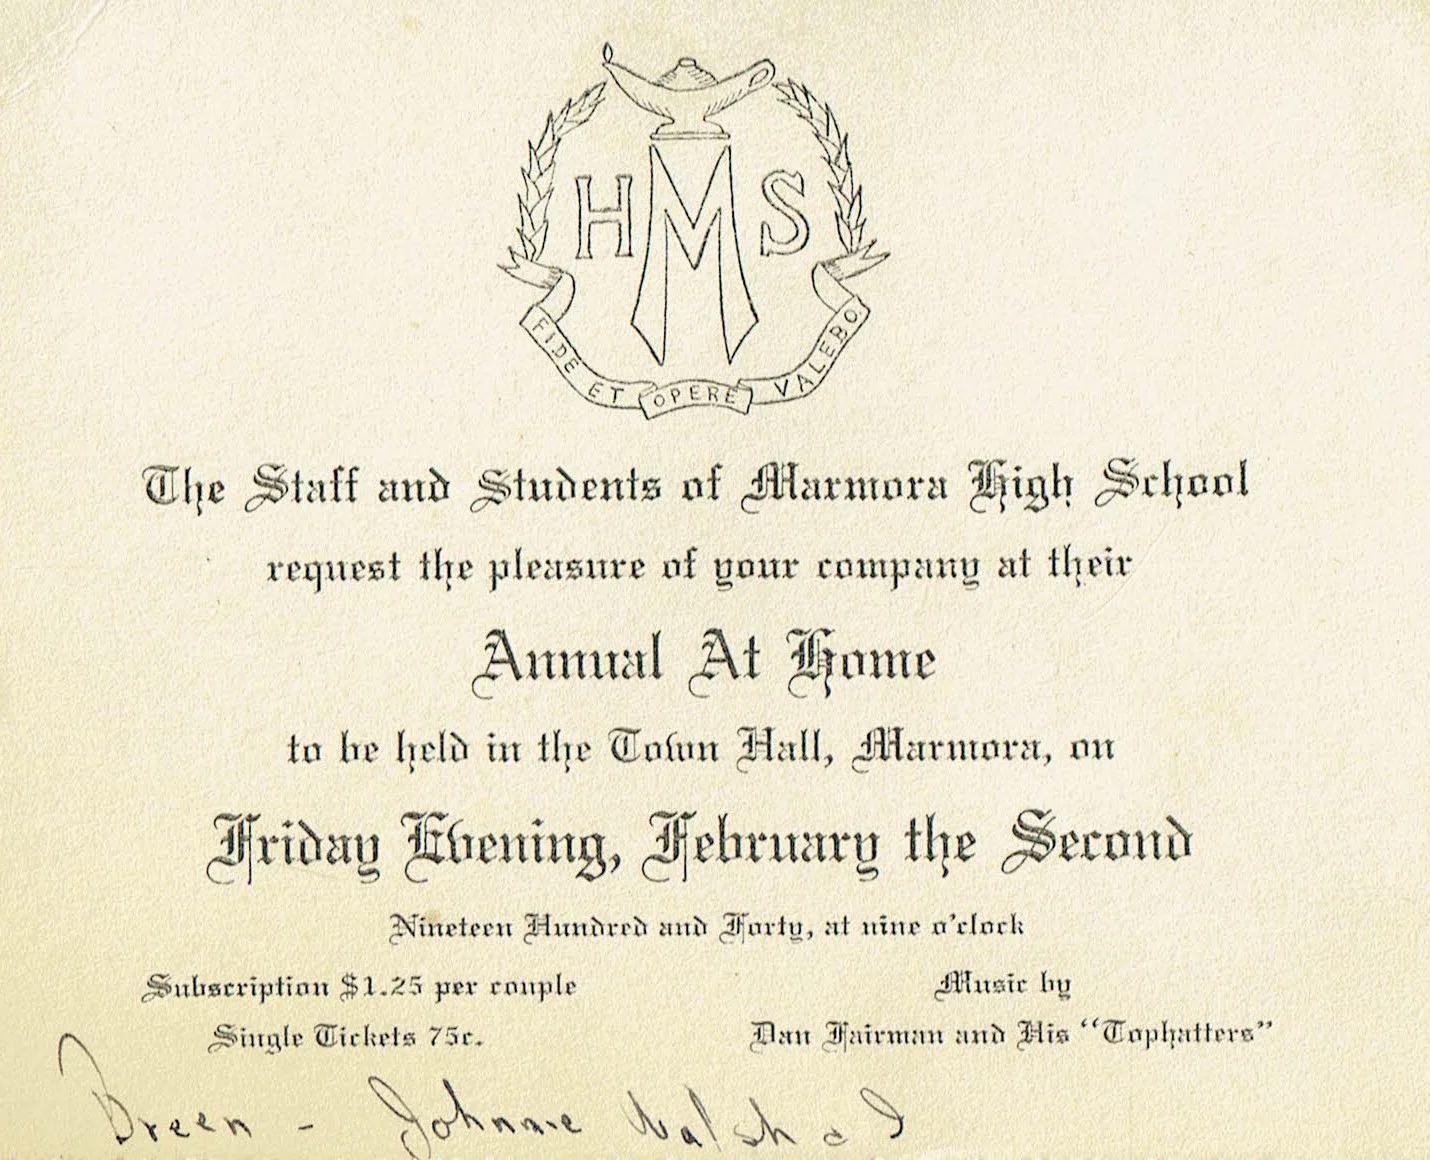 H M S
FIDE ET OPERE VALEBO
The Staff and Students of Marmora High School
request the pleasure of your company at their
Annual At Home
to be held in the Town Hall, Marmora, on
Friday Evening, February the Second
Nineteen Hundred and Forty, at nine o'clock
Subscription $1.25 per couple
Single Tickets 75c.
Music by
Dan Fairman and His "Tophatters"
Breen - Johnnie Walsh & I